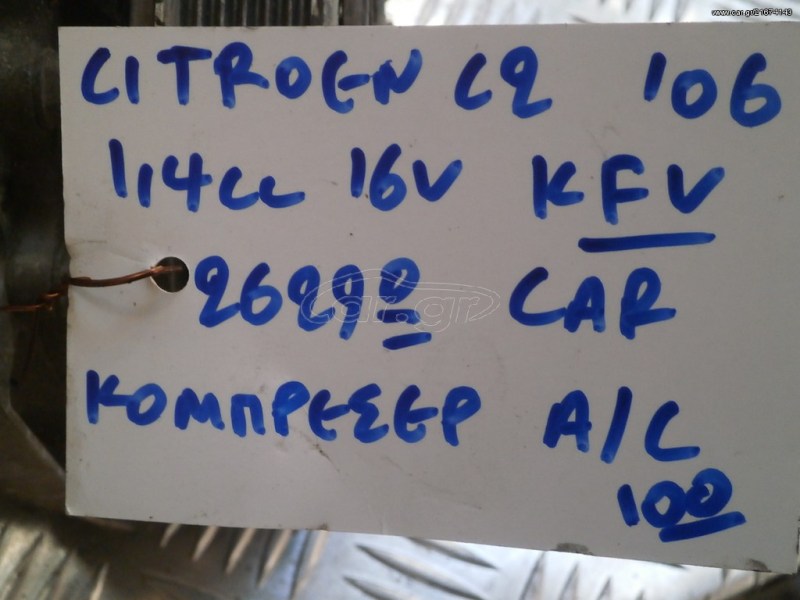 www.car.gr/21674143
CITROEN C2 106
1,4cc 16V KFV
26290 CAR
car.gr
ΚΟΜΠΡΕΣΕΡ A/C
100